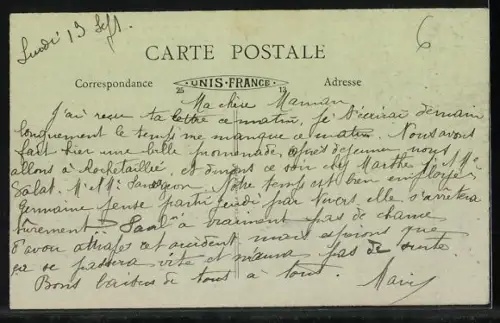 Lundi 13 Sept.
6
CARTE POSTALE
Correspondance
25 UNIS-FRANCE 13
Adresse
Ma chère Maman
J'ai reçu ta lettre ce matin, je t'écrirai demain
longuement le temps me manque ce matin. Nous avons
fait hier une belle promenade, après déjeuner nous
allons à Rochetaillée, et dinons ce soir chez Marthe, Mr Me
Salat, Mr et Me. Notre temps est bien employé,
Germaine pense partir jeudi par Nevers, elle s'arrêtera
sûrement Paul a vraiment pas de chance
d'avoir attrapé cet accident mais espérons que
ça se passera vite et n'aura pas de suite.
Bons baisers de tous à tous.